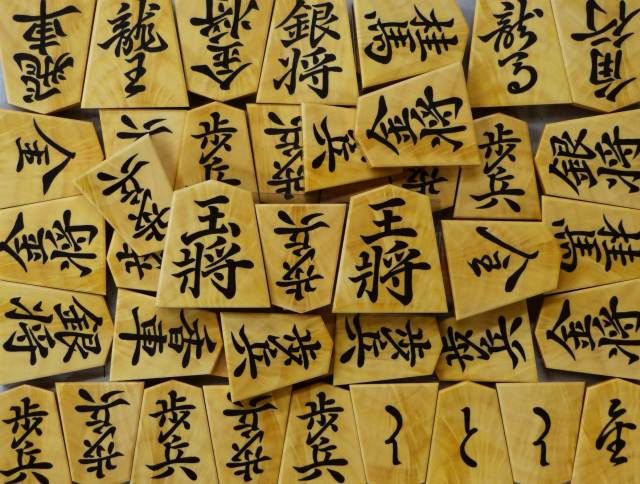 飛車
龍王
金将
銀将
桂馬
龍馬
角行
歩兵
歩兵
金将
歩兵
銀将
歩兵
金将
玉将
歩兵
王将
桂馬
銀将
香車
歩兵
歩兵
歩兵
金将
歩兵
歩兵
歩兵
歩兵
歩兵
と
と
と